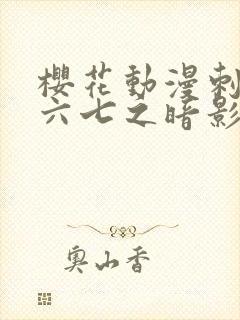 櫻花動漫刺
六七之暗影
奧山香